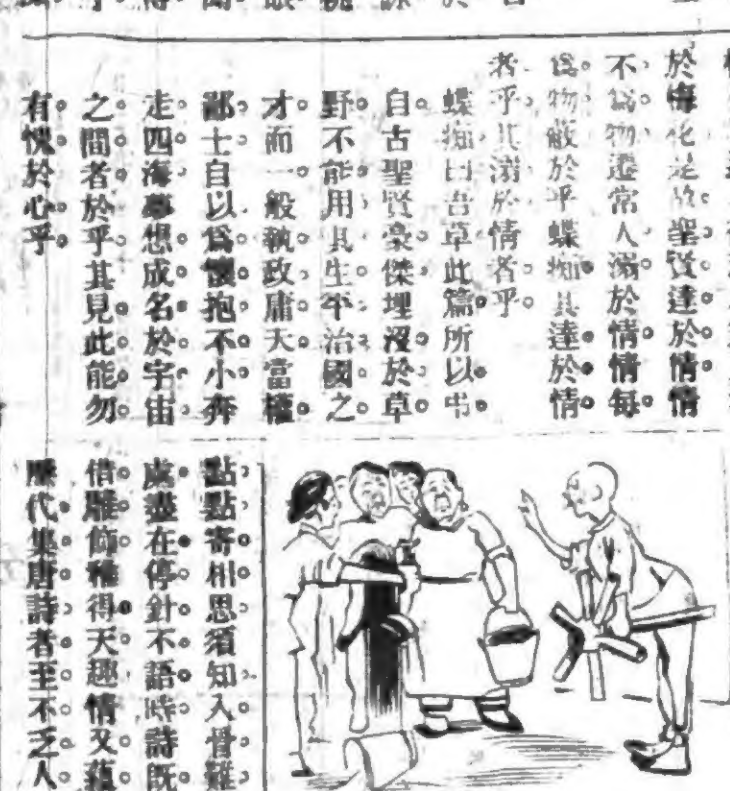 於悔化是故聖賢達於情情
不為物遷常人溺於情情每
為物蔽於乎蝶痴其達於情
者乎其溺於情者乎
蝶痴曰吾草此篇所以弔
自古聖賢豪傑埋沒於草
野不能用其生平治國之
才而一般執政庸夫當權
鄙士自以爲懷抱不小奔
走四海夢想成名於宇宙
之間者於乎其見此能勿
有愧於心乎
點點寄相思須知入骨難
處盡在停針不語時詩既
借雕飾種得天趣情又蘊
歷代集唐詩者至不乏人